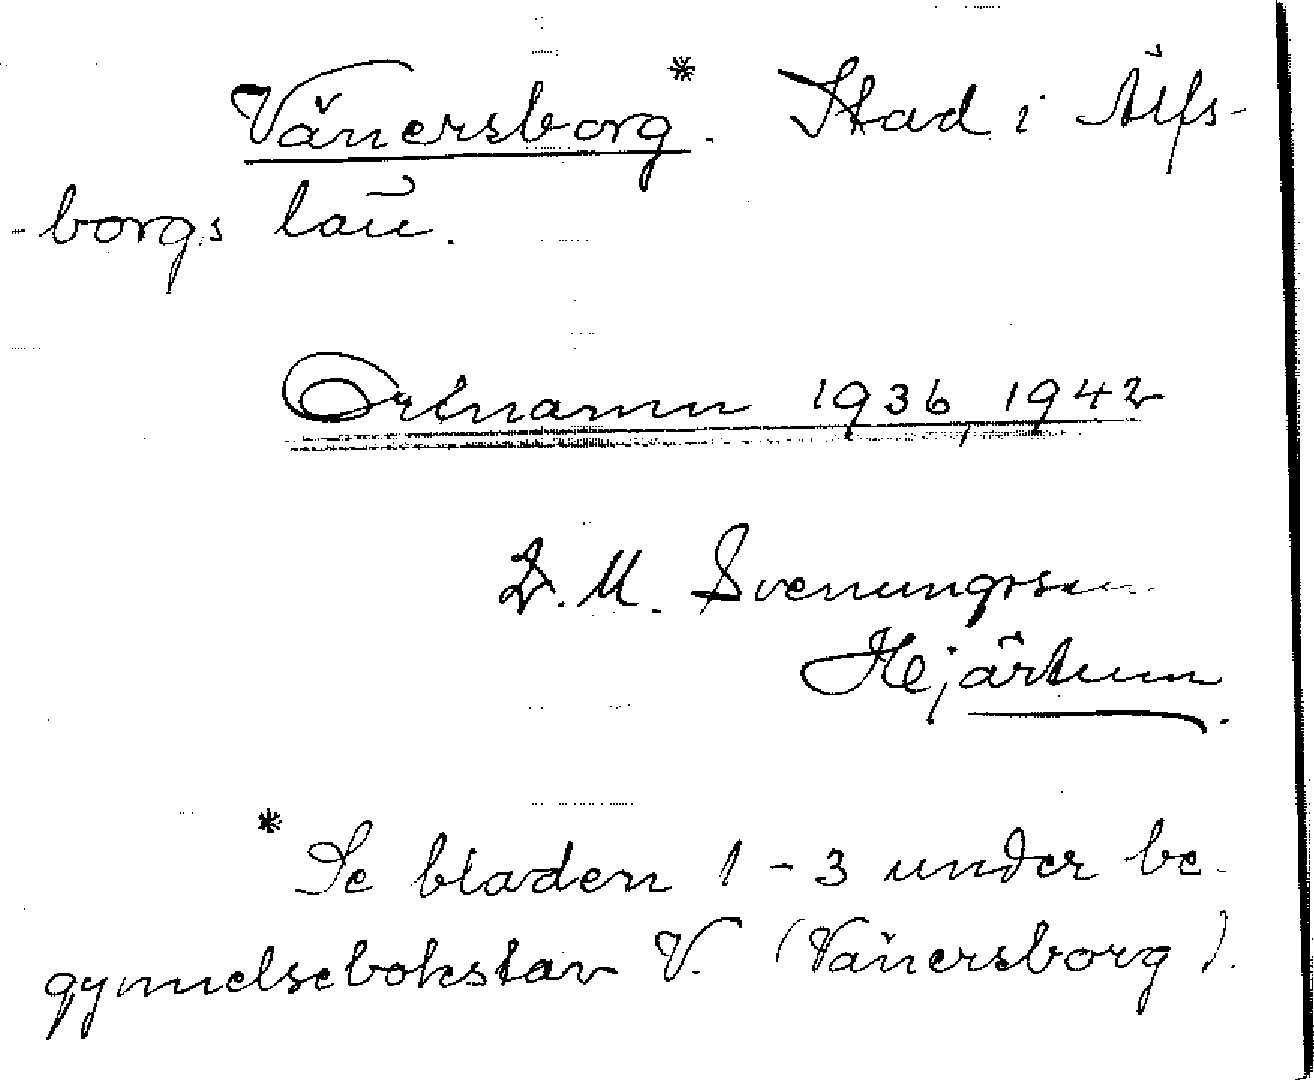 Vänersborg*. Stad i Älfs-
-borgs län.
Ortnamn 1936, 1942
D. M. Svenungsson
Hejärtum.
* Se bladen 1-3 under be-
gynnelsebokstav V. (Vänersborg).